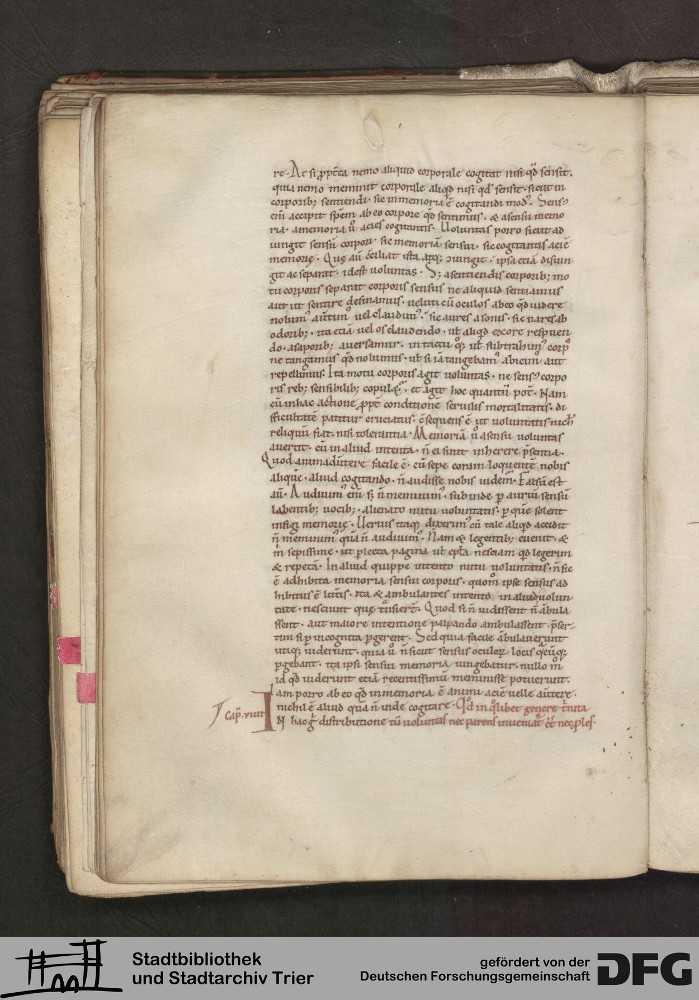 re. Ac si ꝓpt̄ea nemo aliquid corporale cogitat nisi qđ sensit.
quia nemo meminit corporale aliqđ nisi qđ sensit. sicut in
corporib; sentiendi. sic in memoria ē cogitandi mod᷒. Sens᷒
eni̅ accipit spēm ab eo corpore qđ sentimus. & a sensu memo
ria. a memoria u̅ acies cogitantis. Voluntas porro sicut ad
iungit sensū corpori. sic memoriā sensui. sic cogitantis aciē
memorię. Quę au̅ c̄ciliat ista atq; c̄iungit. ipsa etiā disiun
git ac separat. id est voluntas. S; a sentiendis corporib; mo
tu corporis separat corporis sensus ne aliquid sentiamus
aut ut sentire desinamus. veluti cū oculos ab eo qđ videre
nolum᷒ auertim᷒ vel claudim᷒. sic aures a sonis. sic nares ab
odorib;. ita etiā vel os claudendo. ut̄ aliqđ ex ore respuen
do. a saporib; aversamur. in tactu q̊q; ut̄ subtrahim᷒ corp᷒
ne tangamus qđ nolumus. ut̄ si iā tangebam᷒ abicim᷒ aut
repellimus. Ita motu corporis agit voluntas. ne sens᷒ corpo
ris reb; sensibilib; copulet᷑. et agit hoc quantū pot̄. Nam
cū in hac actione ꝓpt̄ conditionē servilis mortalitatis. di
fficultatē patitur cruciatus. c̄sequens ē ut voluntatis nich̄
reliquū fiat. nisi tolerantia. Memoriā u̅ a sensu voluntas
avertit. cū in aliud intenta. n̄ ei sinit inherere p̄sentia.
Quod animadv̄tere facile ē. cū sepe coram loquentē nobis
aliquē. aliud cogitando. n̄ audisse nobis videm᷒. Falsū est
au̅. Audivim᷒ eni̅ s; n̄ meminim᷒. subinde p̱ auriū sensū
labentib; vocib;. alienato nutu voluntatis. p̱ quē solent
infigi memorię. Verius itaq; dixerim᷒ cū tale aliqđ accidit
n̄ meminim᷒ quā n̄ audivim᷒. Nam & legentib; evenit. &
m̄ sepissime. ut p̱lecta pagina ut̄ ep̄la nesciam qđ legerim
& repetā. In aliud quippe intento nutu voluntatis. n̄ sic
ē adhibita memoria sensui corporis. quom̊ ipse sensus ad
hibitus ē litt̄is. ita & ambulantes intenta in aliud volun
tate. nesciunt qua t̄nsierīt. Quod si n̄ vidissent n̄ ābula
ssent. aut maiore intentione palpando ambulassent. p̄ser
tim si p̱ incognita p̱gerent. Sed quia facile ābulaverunt
utiq; viderunt. quia u̅ n̄ sicut sensus oculoꝝ locis q̄cūq;
p̱gebant. ita ipsi sensui memoria iungebatur. nullo m̊
id qđ viderunt etiā recentissimū meminisse potuerunt.
Iam porro ab eo qđ in memoria ē animi aciē velle av̄tere.
nichil ē aliud quā n̄ inde cogitare. Qđ in q̊libet genere t̄nita
Cap̄. viiii
IN hac g̊ distributione cū voluntas nec parens inveniat᷑ eē nec ꝓles
Stadtbibliothek
und Stadtarchiv Trier
gefördert von der
Deutschen Forschungsgemeinschaft
DFG